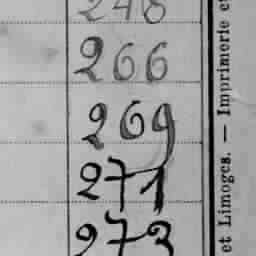 248
266
269
271
273
et Limoges. — Imprimerie et